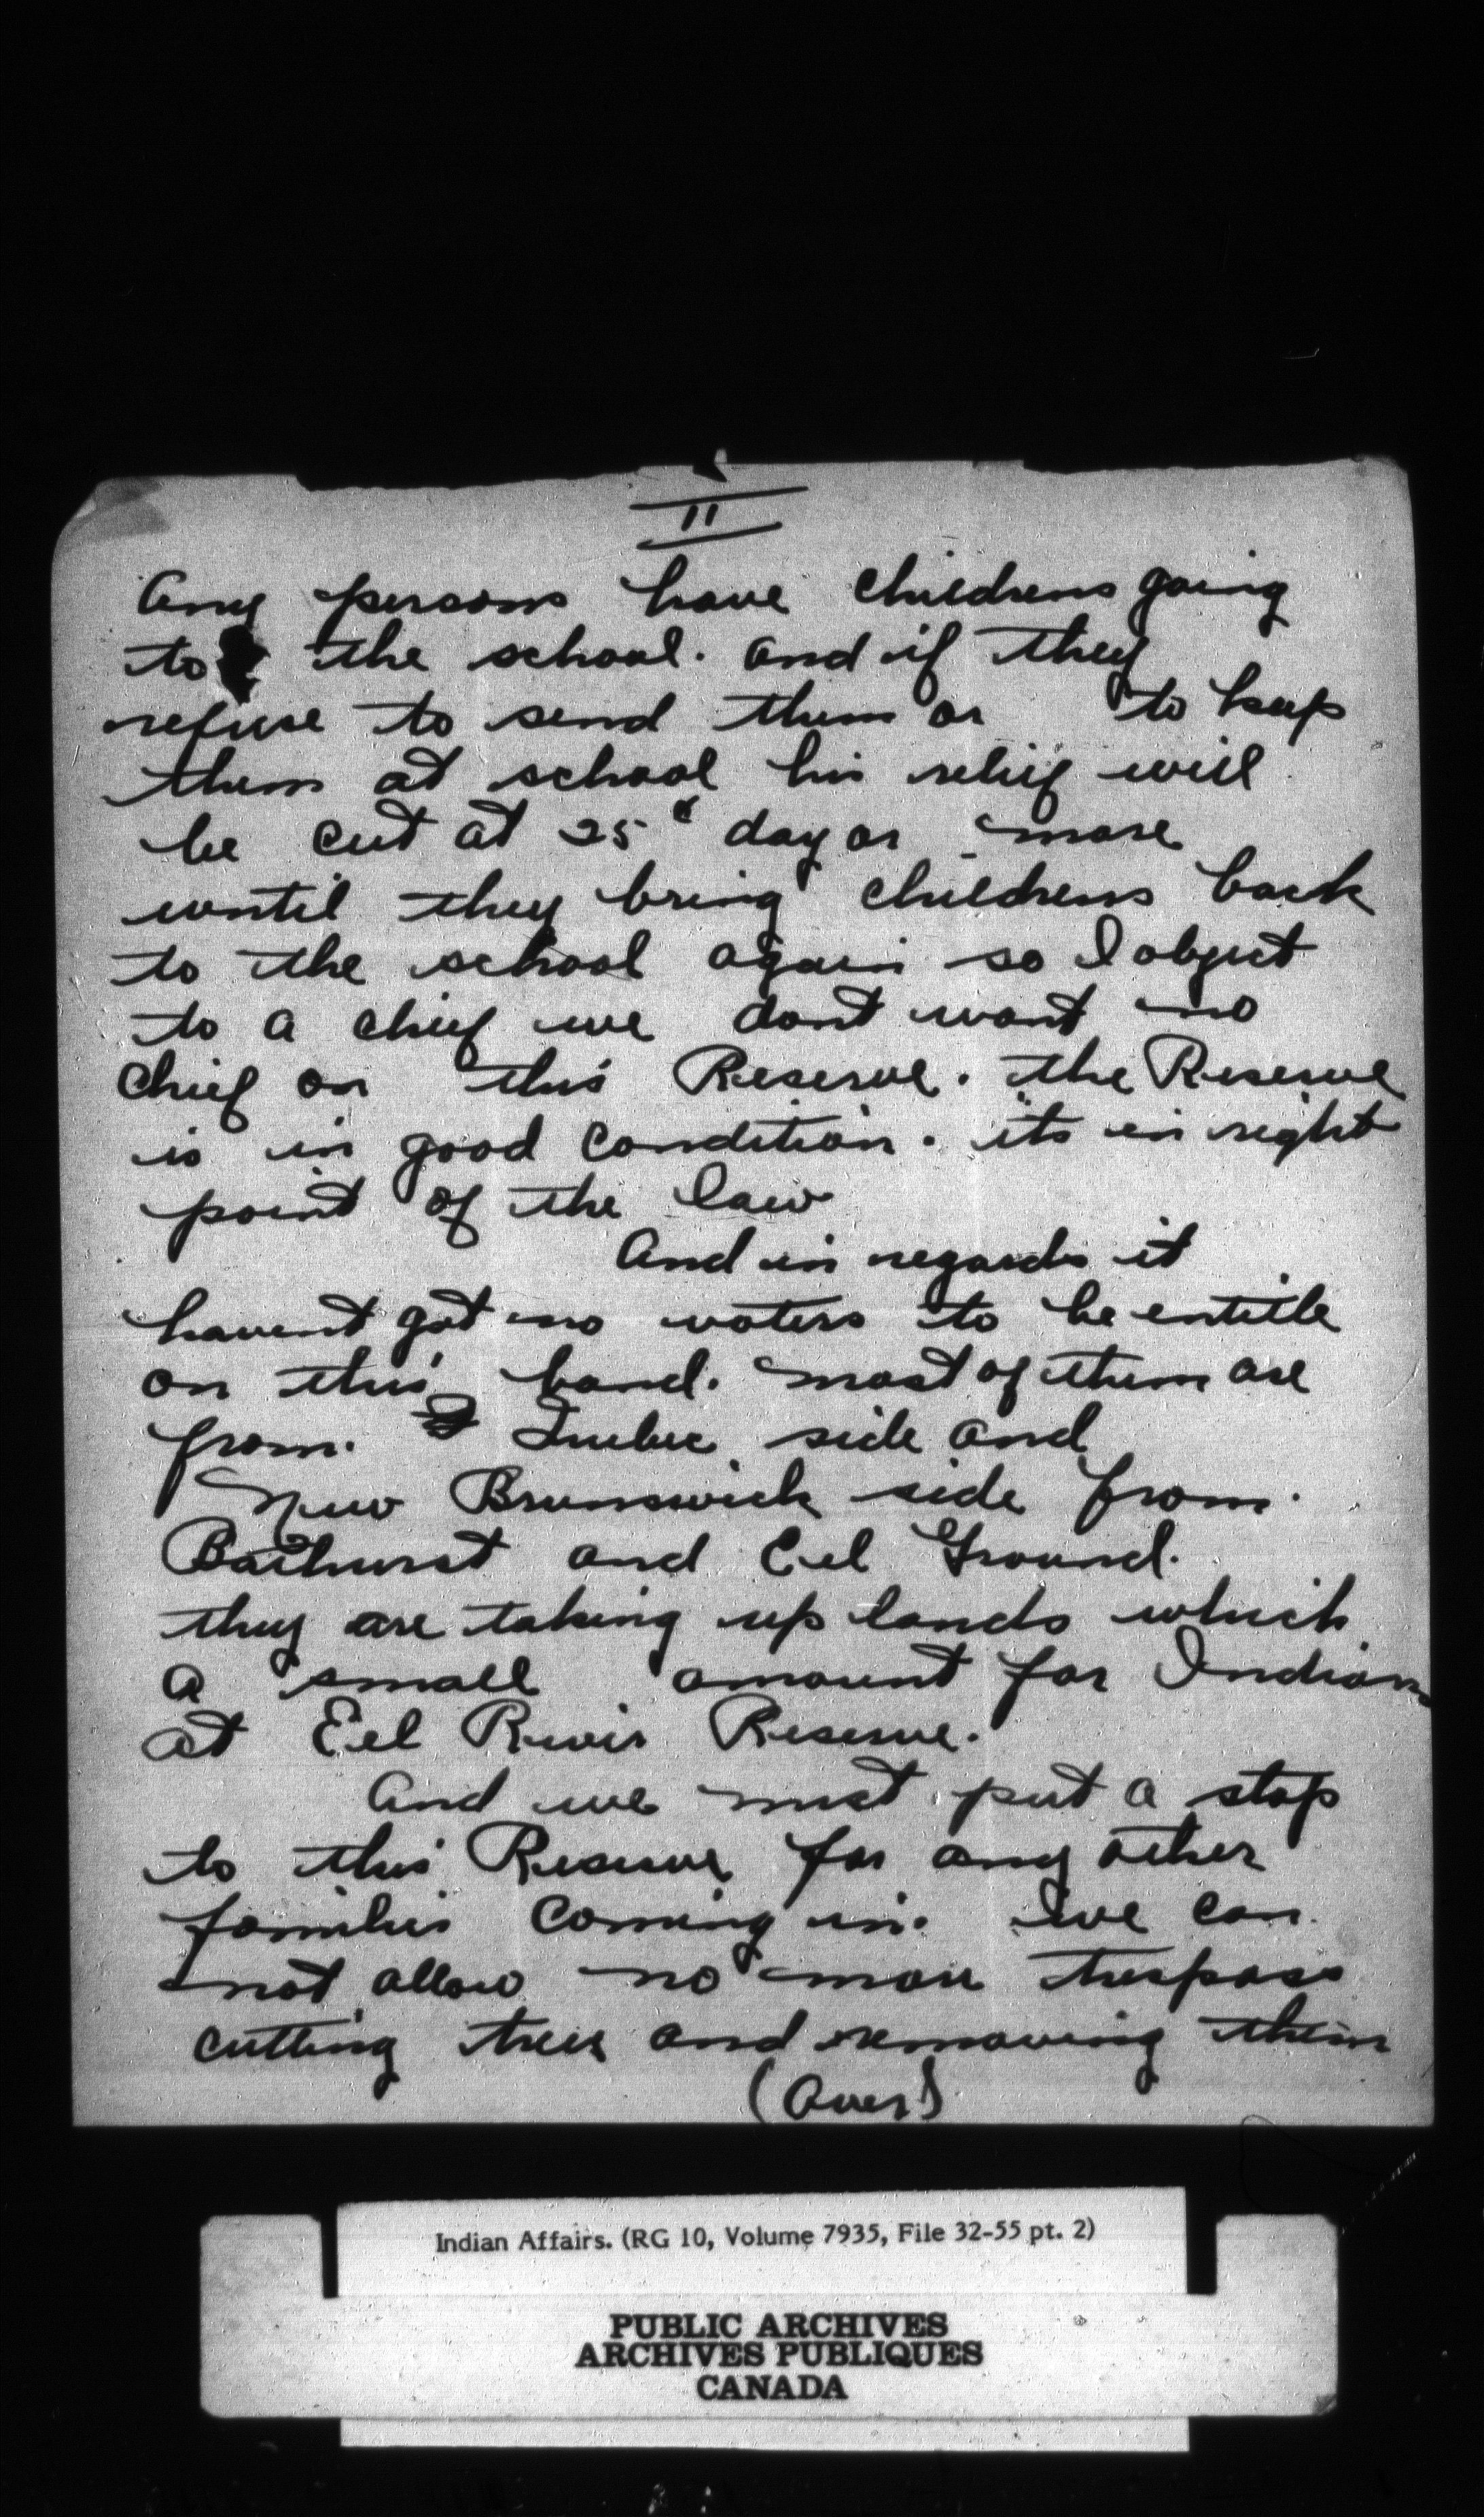 II
Any persons have childrens going
to the school. and if they
refuse to send them or to keep
them at school his relief will
be cut at 25¢ day or more
until they bring childrens back
to the school again so I object
to a chief we dont want no
chief on this Reserve. the Reserve
is in good condition. its in right
point of the law
And in regards it
havent got no voters to be entitle
on this band. most of them are
from. Quebec side and
New Brunswick side from.
Bathurst and Eel Ground.
they are taking up lands which
a small amount for Indians
at Eel River Reserve.
And we must put a stop
to this Reserve for any other
families coming in. we can
not allow no more trespass
cutting trees and removing them
(Over)
Indian Affairs. (RG 10, Volume 7935, File 32-55 pt. 2)
PUBLIC ARCHIVES
ARCHIVES PUBLIQUES
CANADA